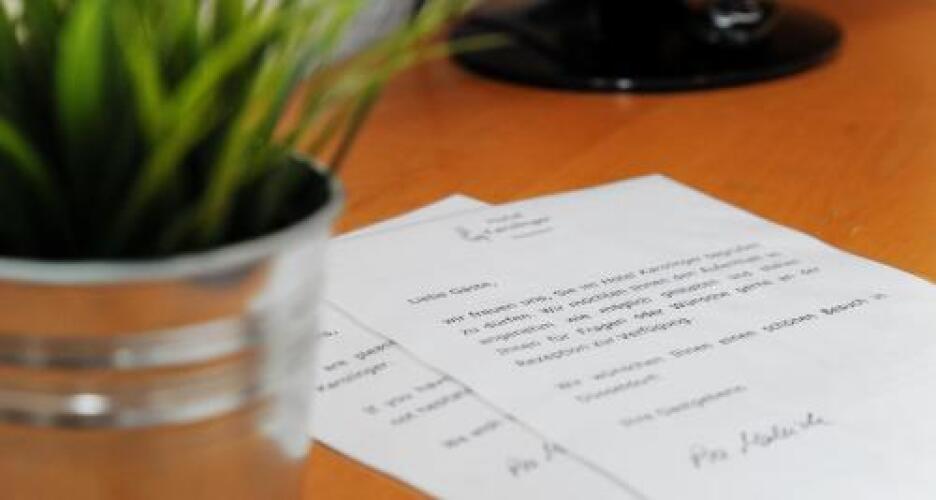 Hotel
Kanzinger
Liebe Gäste,
wir freuen uns, Sie im Hotel Kanzinger begrüßen
zu dürfen. Wir möchten Ihnen den Aufenthalt so
angenehm wie möglich gestalten und stehen
Ihnen für Fragen oder Wünsche gerne an der
Rezeption zur Verfügung.
Wir wünschen Ihnen einen schönen Besuch in
Düsseldorf.
Ihre Gastgeberin
are pleas
Kanzinger
If you have
not hesitate
We wish